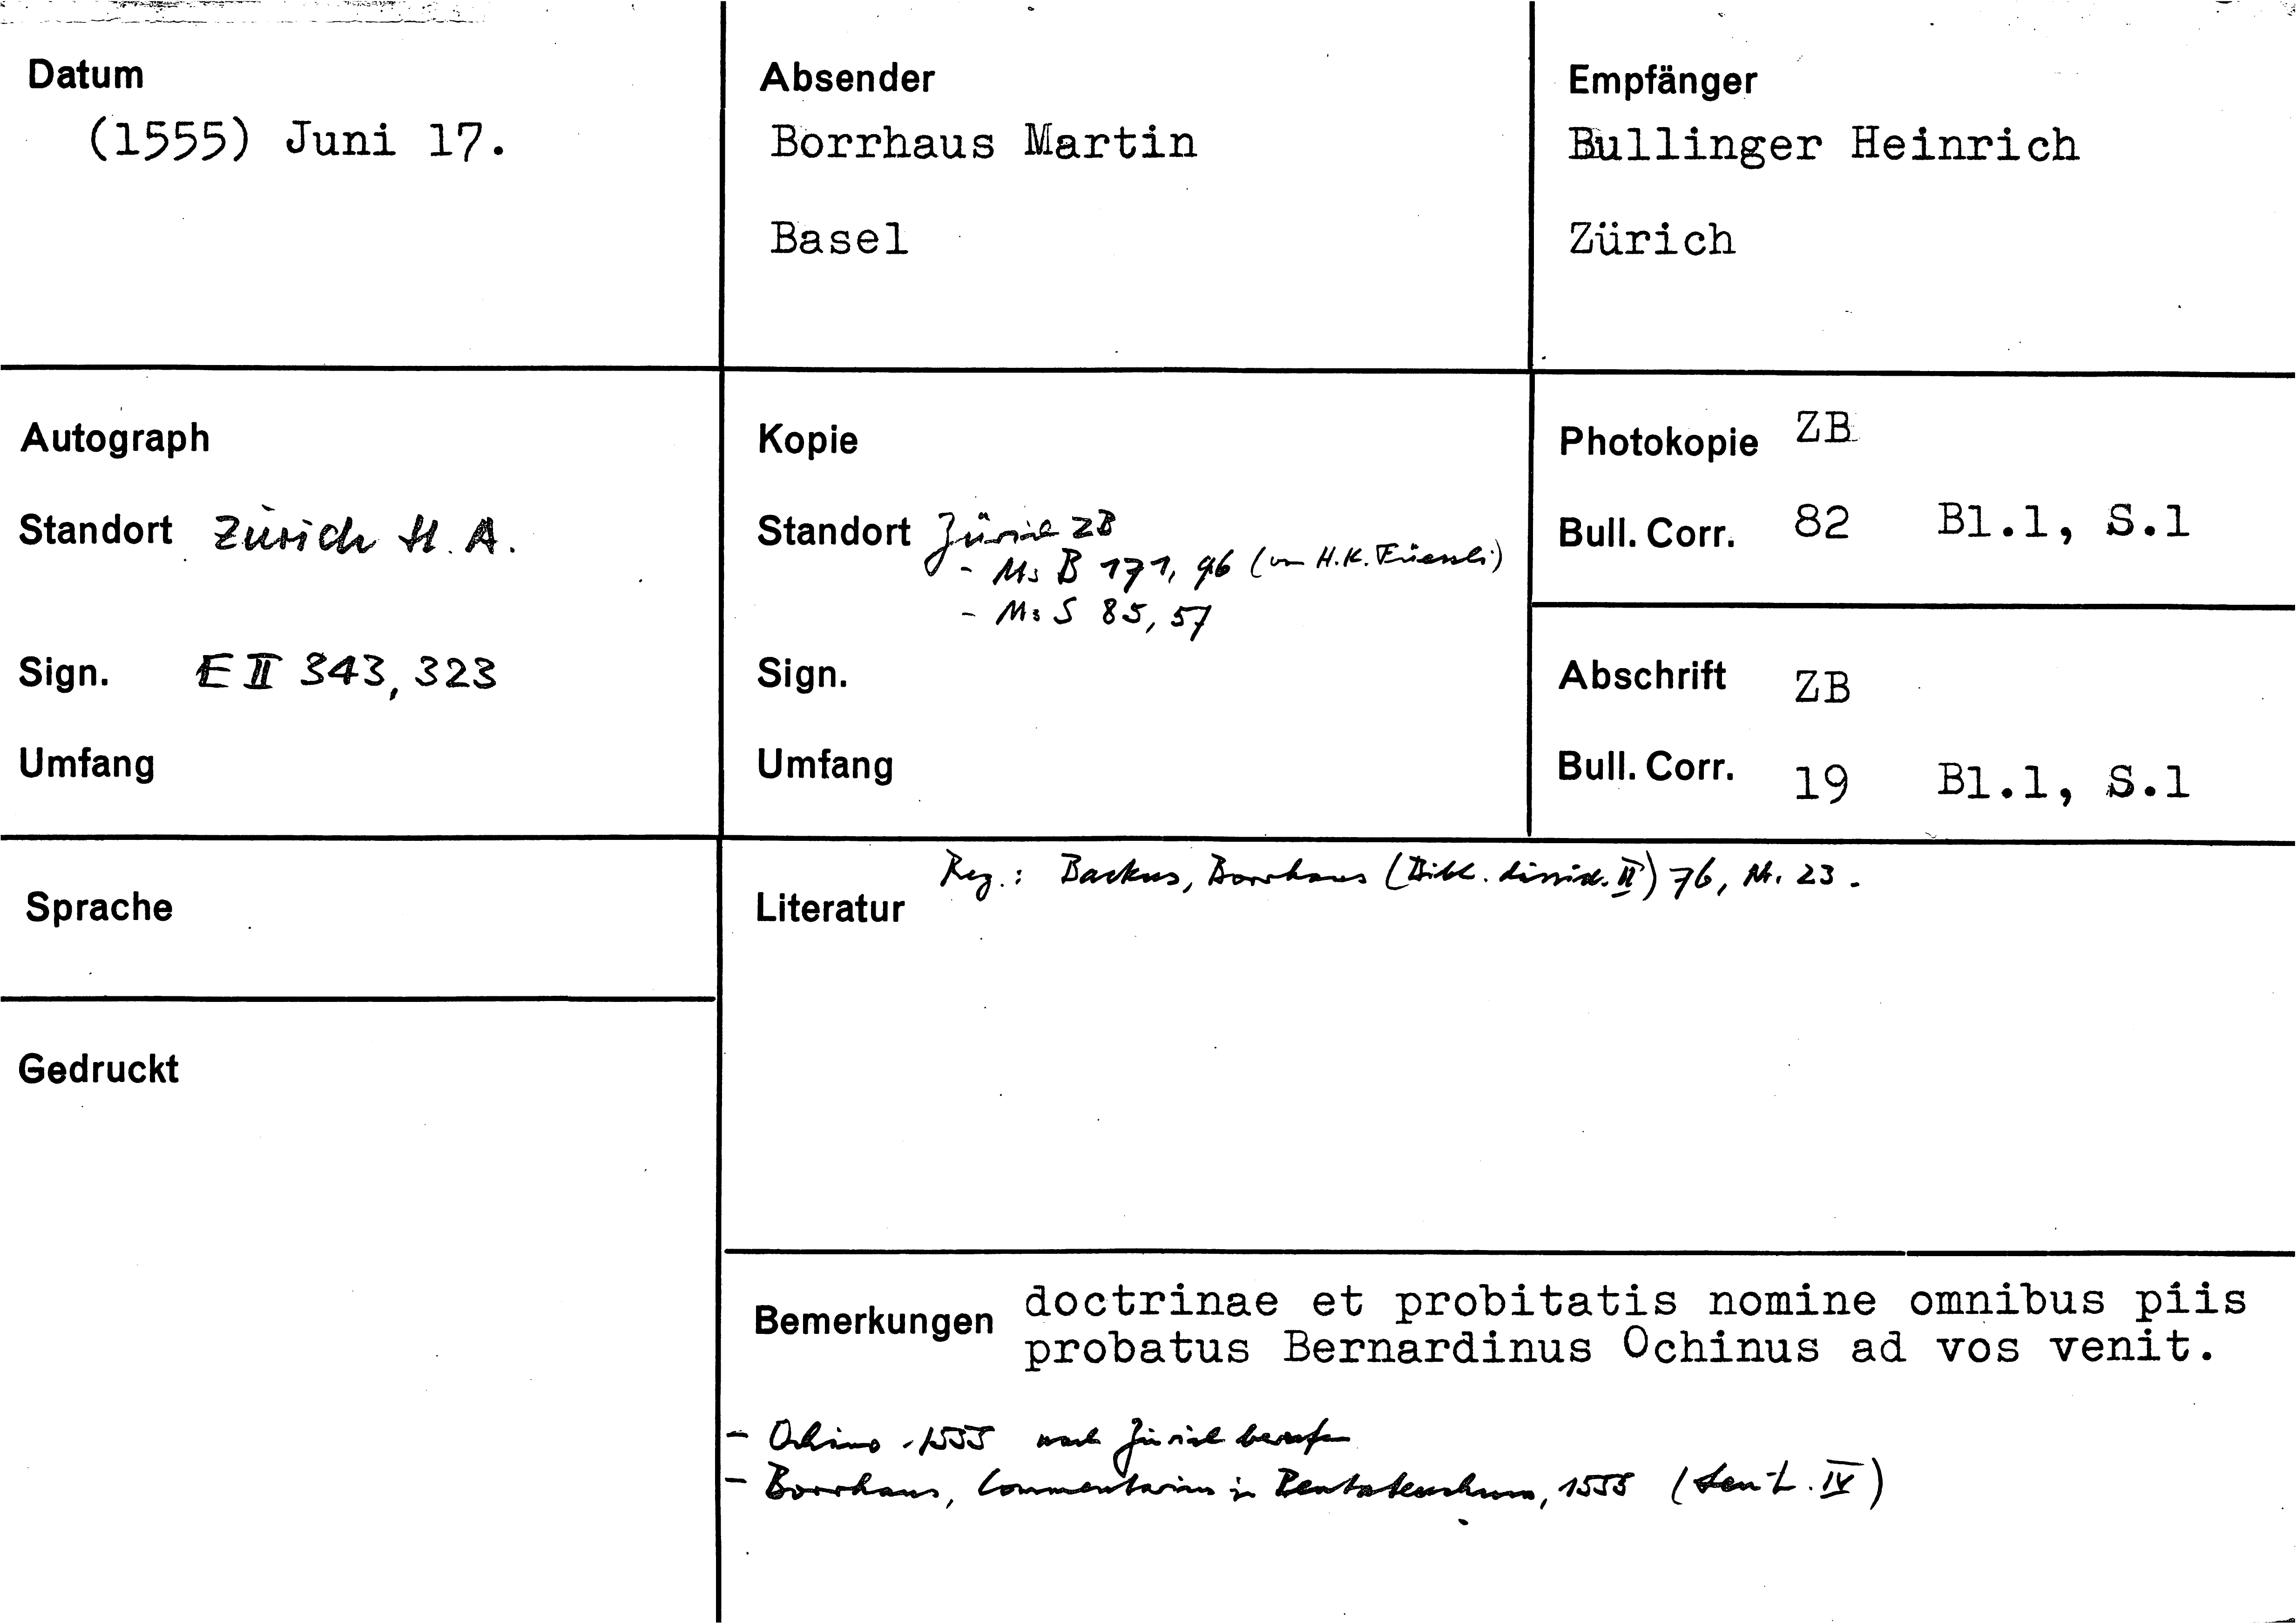 Datum
(1555) Juni 17.
Absender
Borrhaus Martin
Basel
Empfänger
Bullinger Heinrich
Zürich
Autograph
Standort Zürich St. A.
Sign. E II 343, 323
Umfang
Kopie
Standort Zürich ZB
- Ms B 171, 96 (von H.K. Füessli)
- Ms S 85, 57
Sign.
Umfang
Photokopie ZB
Bull. Corr. 82 Bl.1, S.1
Abschrift ZB
Bull. Corr. 19 Bl.1, S.1
Sprache
Gedruckt
Reg.: Backus, Borrhaus (Bibl. dissid. II) 76, Nr. 23.
Literatur
Bemerkungen doctrinae et probitatis nomine omnibus piis
probatus Bernardinus Ochinus ad vos venit.
- Ochino 1555 nach Zürich berufen
- Borrhaus, Commentarius in Pentateuchum, 1555 (IV)